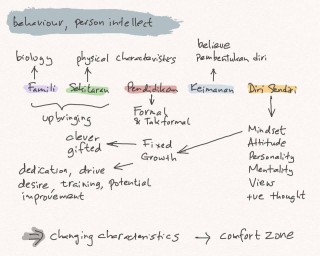 behaviour, person intellect
biology
physical characteristics
believe
pembentukan diri
Famili
Sekitaran
Pendidikan
Keimanan
Diri Sendiri
upbringing
Formal
& Tak formal
clever
gifted
Fixed
Growth
dedication, drive
desire, training, potential
improvement
Mindset
Attitude
Personality
Mentality
Views
+ve thought
changing characteristics → comfort zone